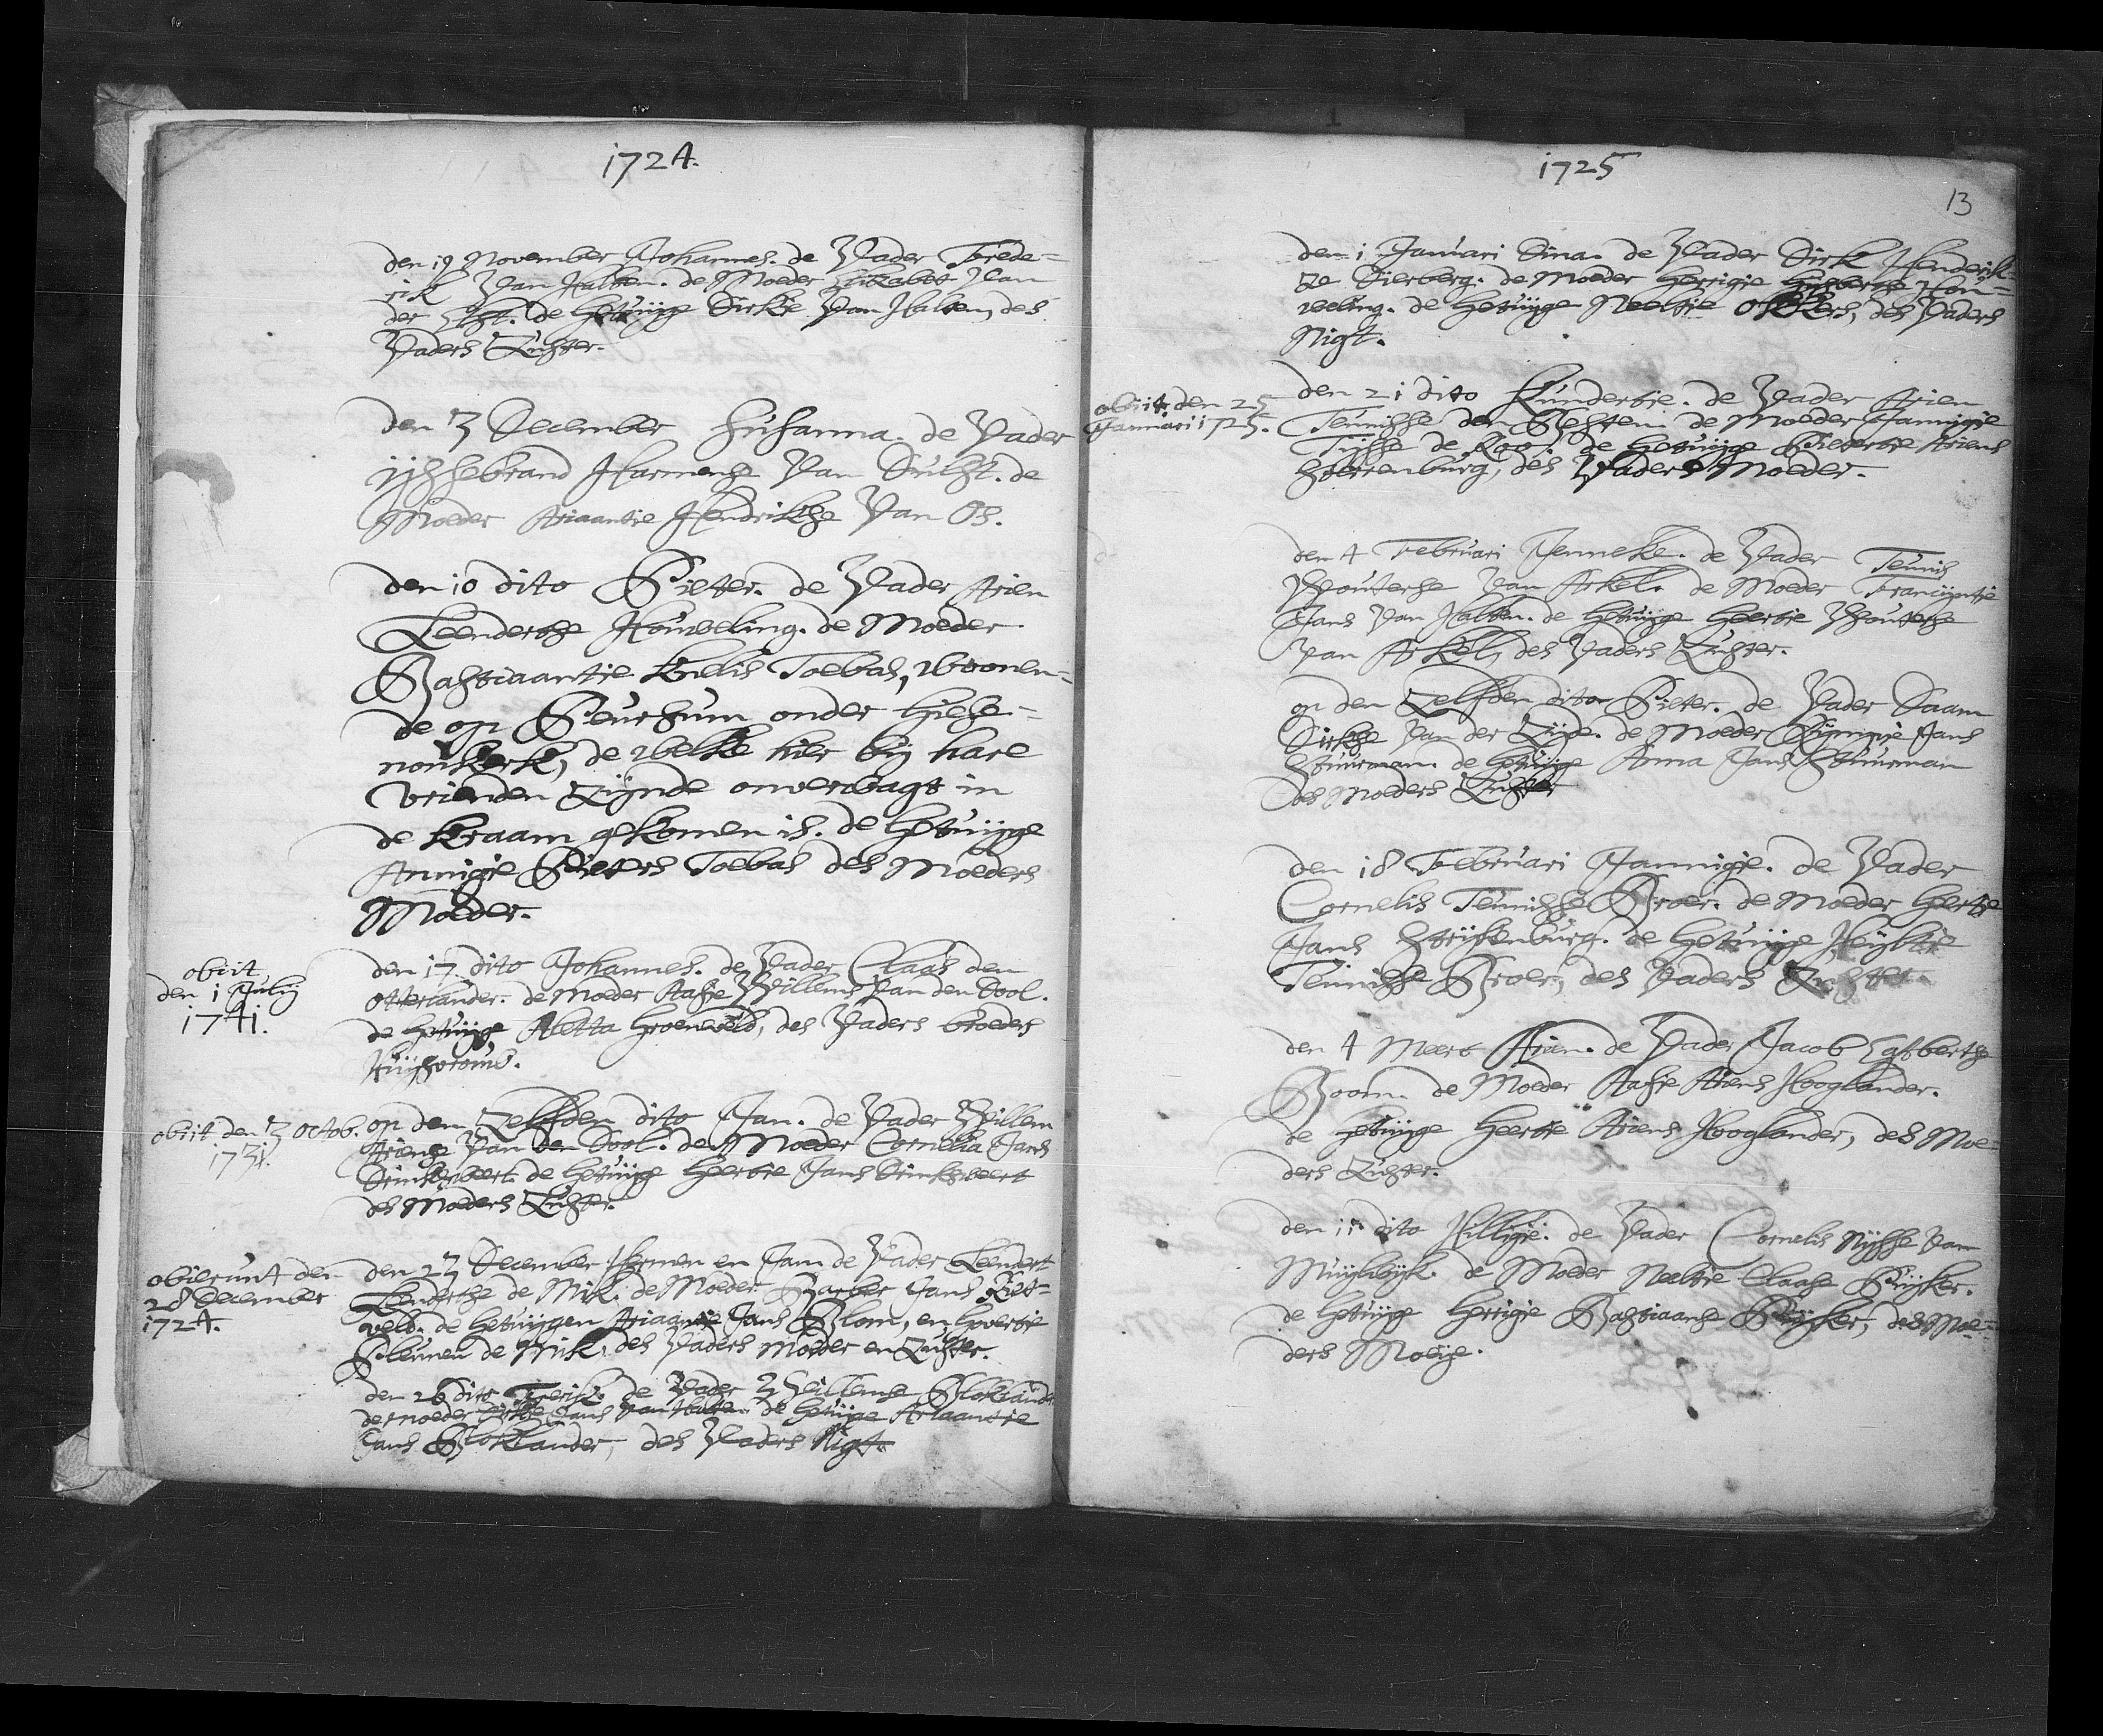 1724.
den 19 November Johannes. de Vader Frede-
rik Van Halten. de Moeder Elizabet Van
der Elst. de Getuijge Dirkie Van Halten, des
Vaders Zuster.
den 3 December Susanna. de Vader
Ijsebrand Harmense Van Dulst. de
Moeder Ariaantie Hendrikse Van Os.
den 10 dito Pieter. de Vader Arien
Leendertse Houweling. de Moeder
Bastiaantie Kielis Toebas, woonen-
de op Peursum onder Giese-
nouwkerk, de welke hier bij hare
vrienden zijnde onverwagt in
de kraam gekomen is. de Getuijge
Annigie Pieters Toebas des Moeders
Moeder.
obiit
den 1 July
1741.
den 17 dito Johannes. de Vader Claas den
Otterlander. de Moeder Aafie Willems Van den Dool.
de Getuijge Aletta Groeneveld, des Vaders broeders
Huijsvrouw.
obiit den 3 Octob.
1731.
op den Zelfden dito Jan. de Vader Willem
Ariense Van den Dool. de Moeder Cornelia Jans
Drinkweert. de Getuijge Geertie Jans Drinkweert
des Moeders Zuster.
obierunt den
28 December
1724.
den 23 December Hermen en Jan. de Vader Leendert
Leendertse de Mik. de Moeder Barber Jans Riet-
veld. de Getuijgen Ariaantie Jans Blom, en Goertie
Pleunen de Mik, des Vaders Moeder en Zuster.
den 26 dito Frerik. de Vader Willemse Bloklander
de moeder Dirkie Jans van Halten. de Getuijge Ariaantie
Jans Bloklander, des Vaders Nigt.
1725
13
den 1 Januari Dina. de Vader Dirk Hendrik-
ze Dierberg. de Moeder Gerrigie Gijsbertse Hou-
weling. de Getuijge Neeltie Okkers, des Vaders
Nigt.
obiit den 25
Januari 1725.
den 21 dito Lunderbie. de Vader Arien
Teunisse den Besten. de Moeder Jannigie
Tijsse de Roo. de Getuijge Pietertie Ariens
Sterrenburg, des Vaders Moeder.
den 4 Februari Jenneke. de Vader Teunis
Wouterse Van Arkel. de Moeder Francijntie
Jans Van Halten. de Getuijge Geertie Wouterse
Van Arkel, des Vaders Zuster.
op den Zelfden dito Pieter. de Vader Daam
Dirkse Van der Zijde. de Moeder Pijnigie Jans
Stuurman. de Getuijge Anna Jans Stuurman
des Moeders Zuster
den 18 Februari Jannigie. de Vader
Cornelis Teunisse Broer. de Moeder Geertie
Jans Strijkenburg. de Getuijge Heijltie
Teunisse Broer, des Vaders Zuster.
den 4 Meert Arien. de Vader Jacob Eijsbertse
Boom. de Moeder Aafie Ariens Hooglander.
de Getuijge Geertie Ariens Hooglander, des Moe-
ders Zuster.
den 11 dito Hilligie. de Vader Cornelis Nijsse Van
Muijlwijk. de Moeder Neeltie Claase Buijker.
de Getuijge Gerrigie Bastiaanse Buijker, des Moe-
ders Moeije.